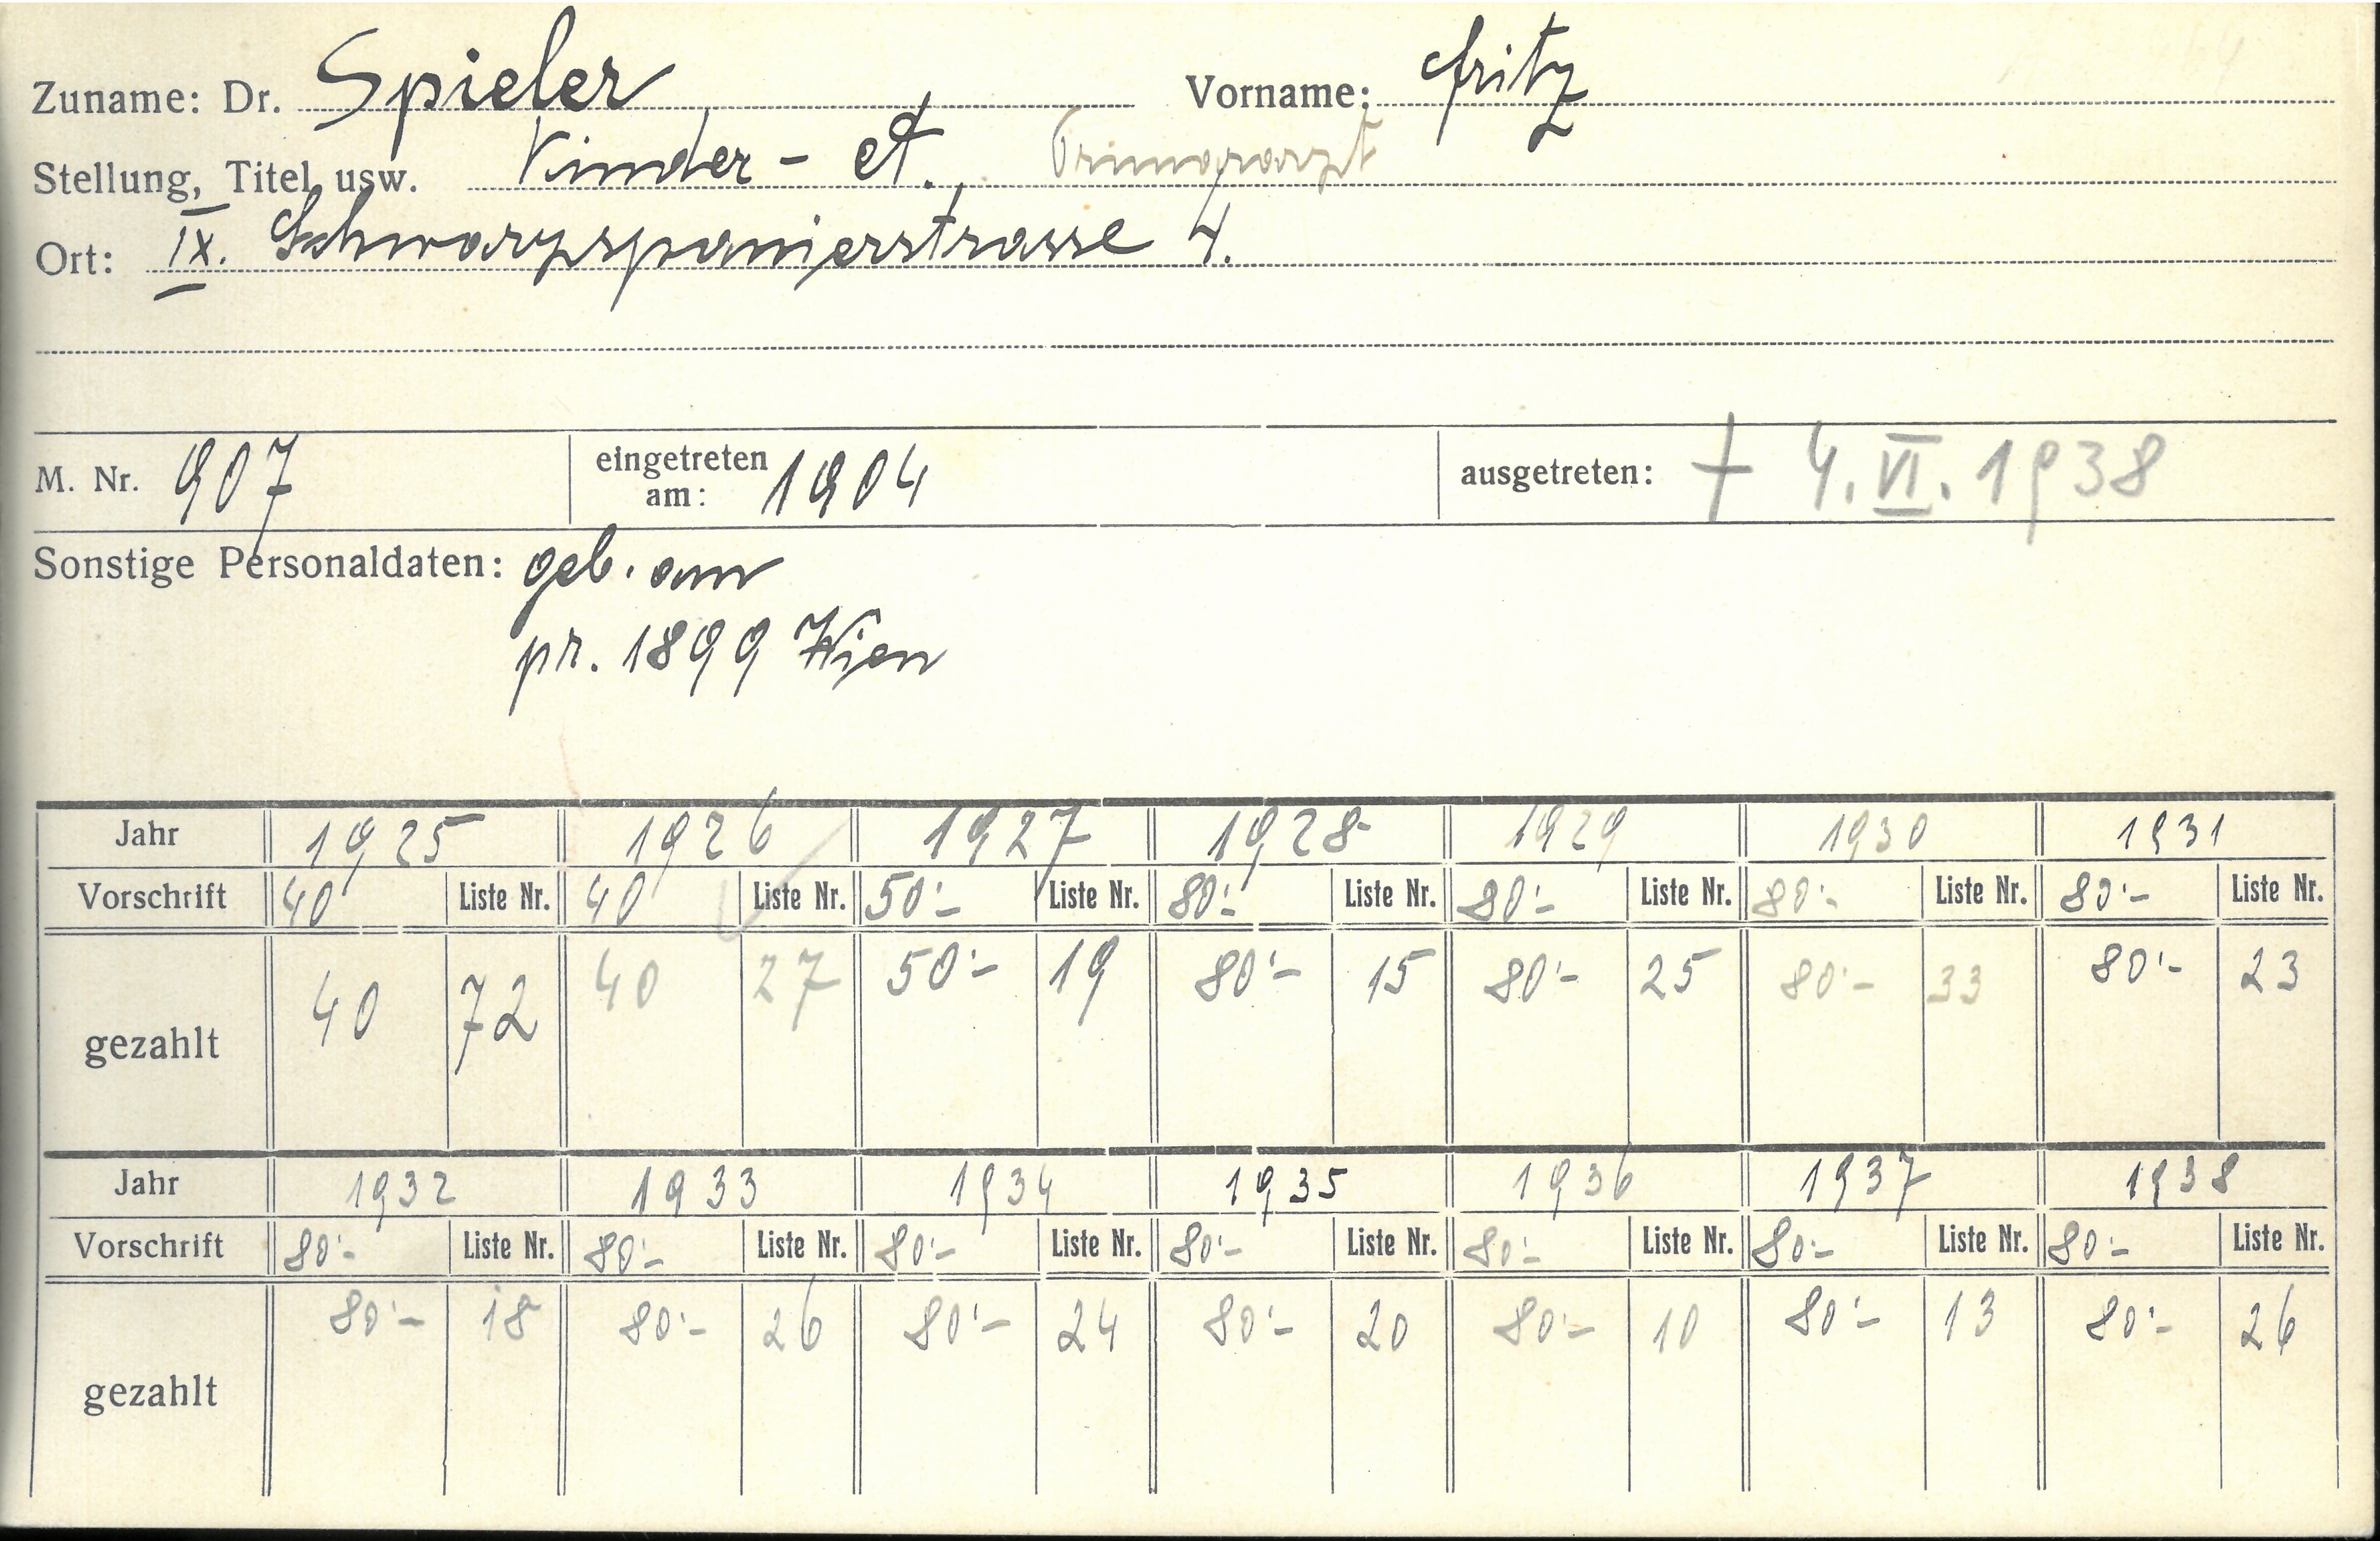 Zuname: Dr. Spieler Vorname: Fritz
Stellung, Titel usw. Kinder-A. Primararzt
Ort: IX. Schwarzspanierstrasse 4.
M. Nr. 907 eingetreten am: 1904 ausgetreten: † 4. VI. 1938
Sonstige Personaldaten: geb. am
pr. 1899 Wien
Jahr 1925 1926 1927 1928 1929 1930 1931
Vorschrift 40 Liste Nr. 40 Liste Nr. 50'- Liste Nr. 80'- Liste Nr. 80'- Liste Nr. 80'- Liste Nr. 80'- Liste Nr.
gezahlt 40 72 40 27 50'- 19 80'- 15 80'- 25 80'- 33 80'- 23
Jahr 1932 1933 1934 1935 1936 1937 1938
Vorschrift 80'- Liste Nr. 80'- Liste Nr. 80'- Liste Nr. 80'- Liste Nr. 80'- Liste Nr. 80'- Liste Nr. 80'- Liste Nr.
gezahlt 80'- 18 80'- 26 80'- 24 80'- 20 80'- 10 80'- 13 80'- 26